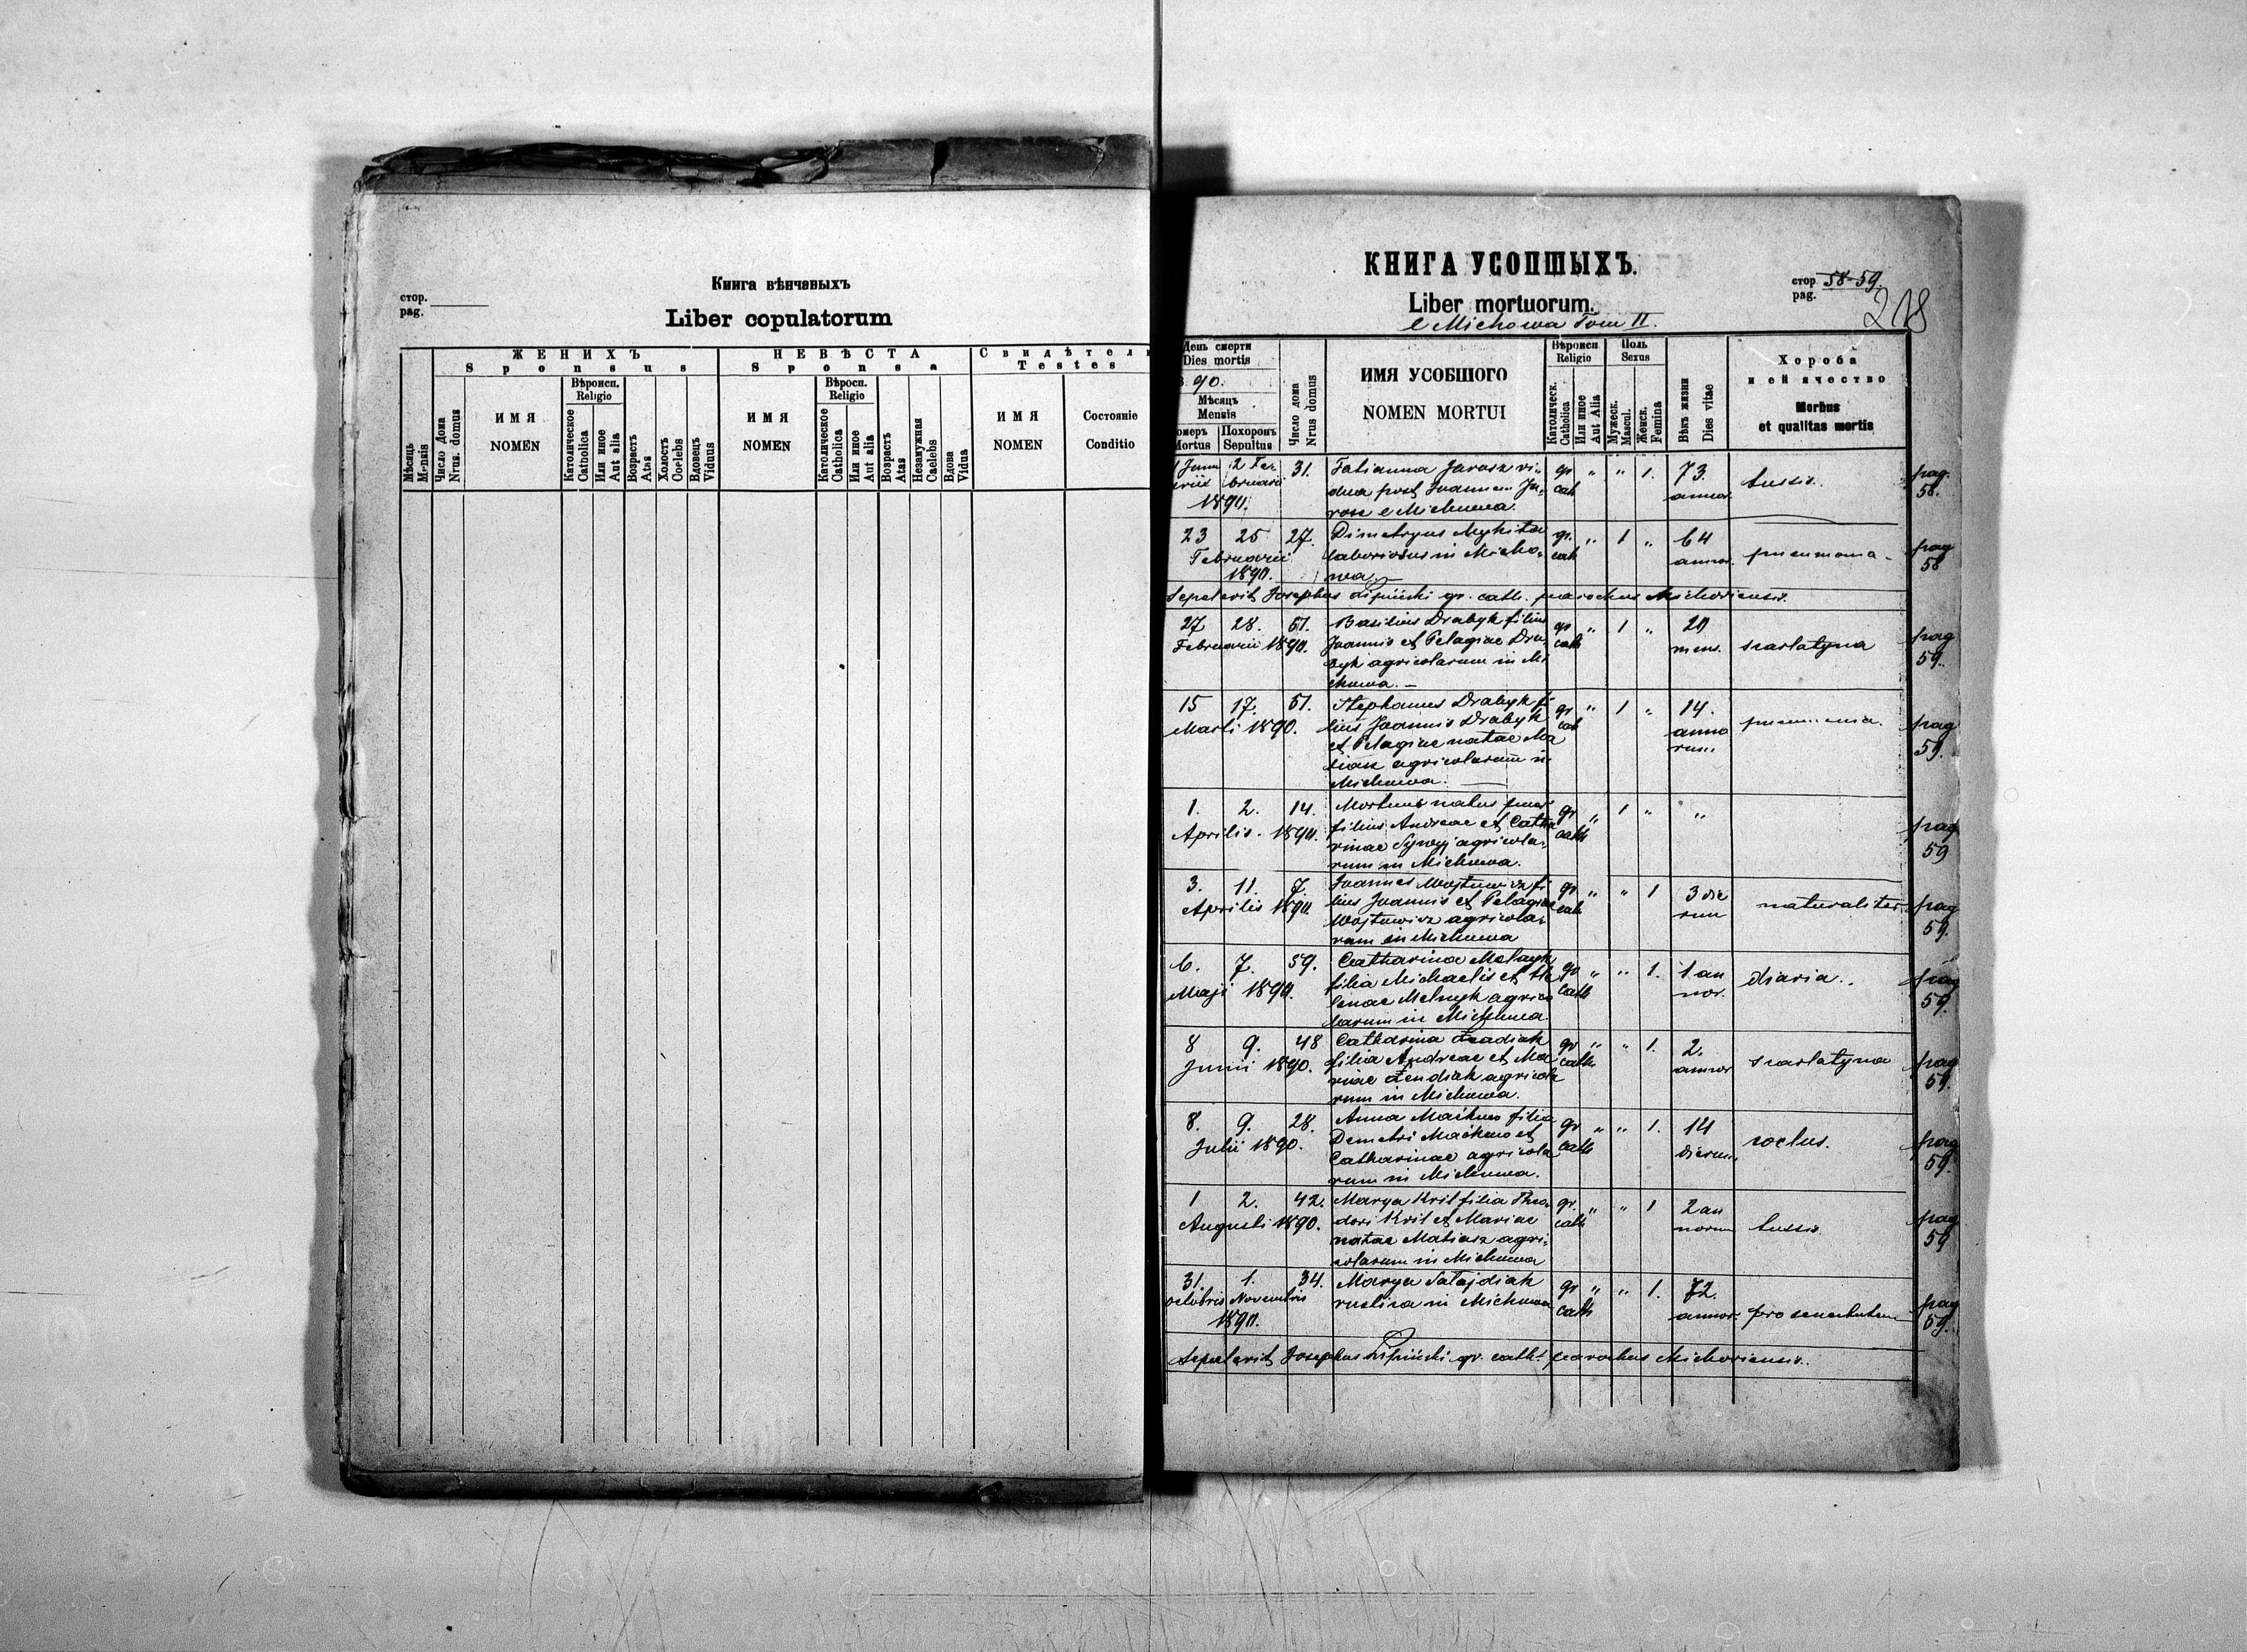 Книга вѣнчавыхъ
стор.
pag.
Liber copulatorum
ЖЕНИХЪ
Sponsus
НЕВѢСТА
Sponsa
Свидѣтели
Testes
Мѣсяць
Mensis
Число Дома
Nrus. domus
ИМЯ
NOMEN
Вѣроисп.
Religio
Католическое
Catholica
Или иное
Aut alia
Возрастъ
Atas
Холостъ
Coelebs
Вдовецъ
Viduus
ИМЯ
NOMEN
Вѣросп.
Religio
Католическое
Catholica
Или иное
Aut alia
Возрастъ
Atas
Незамужная
Caelebs
Вдова
Vidua
ИМЯ
NOMEN
Состояніе
Conditio
КНИГА УСОПШЫХЪ.
стор 58-59.
pag.
Liber mortuorum.
218
e Michowa Tom II.
День смерти
Dies mortis
90.
Мѣсяцъ
Mensis
Mortus
Похоронъ
Sepultus
Число дома
Nrus domus
ИМЯ УСОБШОГО
NOMEN MORTUI
Вѣроисп
Religio
Католическ.
Catholica
Или иное
Aut Alia
Поль
Sexus
Мужеск.
Mascul.
Женск.
Femina
Вѣкъ жизни
Dies vitae
Хороба
и ей ячество
Morbus
et qualitas mortis
2 Fe
bruarii
1890.
31.
Tatianna Jarosz vi-
dua post Joannem Ja-
rosz e Michowa.
gr
cat
" " 1.
73.
annor.
tussis.
pag.
58.
23 25 27.
Februarii
1890.
Dimetryus Mykita
laboriosus in Micho-
wa
gr.
cath
" 1 "
64
annor.
pneumonia
pag
58
Sepelevit Josephus Lipiński gr. cath. parochus Michoviensis.
27 28. 51.
Februarii 1890.
Basilius Drabyk filius
Joannis et Pelagiae Dra-
byk agricolarum in Mi
chowa.
gr
cath
" 1 "
20
mens.
scarlatyna
pag
59.
15 17. 51.
Marti 1890.
Stephanus Drabyk fi
lius Joannis Drabyk
et Pelagiae natae Ma
tiasz agricolarum in
Michowa.
gr
cat
" 1 "
14.
anno
rum.
pneumonia.
pag
59.
1. 2. 14.
Aprilis. 1890.
Mortuus natus puer
filius Andreae et Catha
rinae agricola-
rum in Michowa.
gr
cath
" 1 " "
pag
59
3. 11. 7.
Aprilis 1890.
Joannes Wojtowicz fi
lius Joannis et Pelagiae
Wojtowicz agricola-
rum in Michowa
gr
cath
" " 1
3 die
rum
naturaliter
pag
59.
6. 7. 39.
Maji 1890.
Catharina Melnyk
filia Michaelis et He
lenae Melnyk agrico
larum in Michowa.
gr
cath
" " 1.
1 an
nor.
diaria.
pag
59.
8 9. 48
Junii 1890.
Catharina
filia Andreae et Ma
riae agricola
rum in Michowa.
gr
cath
" " 1.
2.
annor
scarlatyna
pag
59.
8. 9. 28.
Julii 1890.
Anna Maćkno filia
Demetri Maćkno et
Catharinae agricola
rum in Michowa.
gr
cath
" " 1.
14
dierum
coclus.
pag
59.
1 2. 42.
Augusti 1890.
Marya Kril filia Theo-
dori Kril et Mariae
natae Matiasz agri-
colarum in Michowa
gr.
cath
" " 1
2 an
norum
tussis
pag
59
31. 1. 34.
octobris Novembris
1890.
Marya Satajdiak
rustica in Michowa
gr
cath
" " 1.
72.
annor.
pro senectutem
pag
59.
Sepelevit Josephus Lipiński gr. cath. parochus Michoviensis.